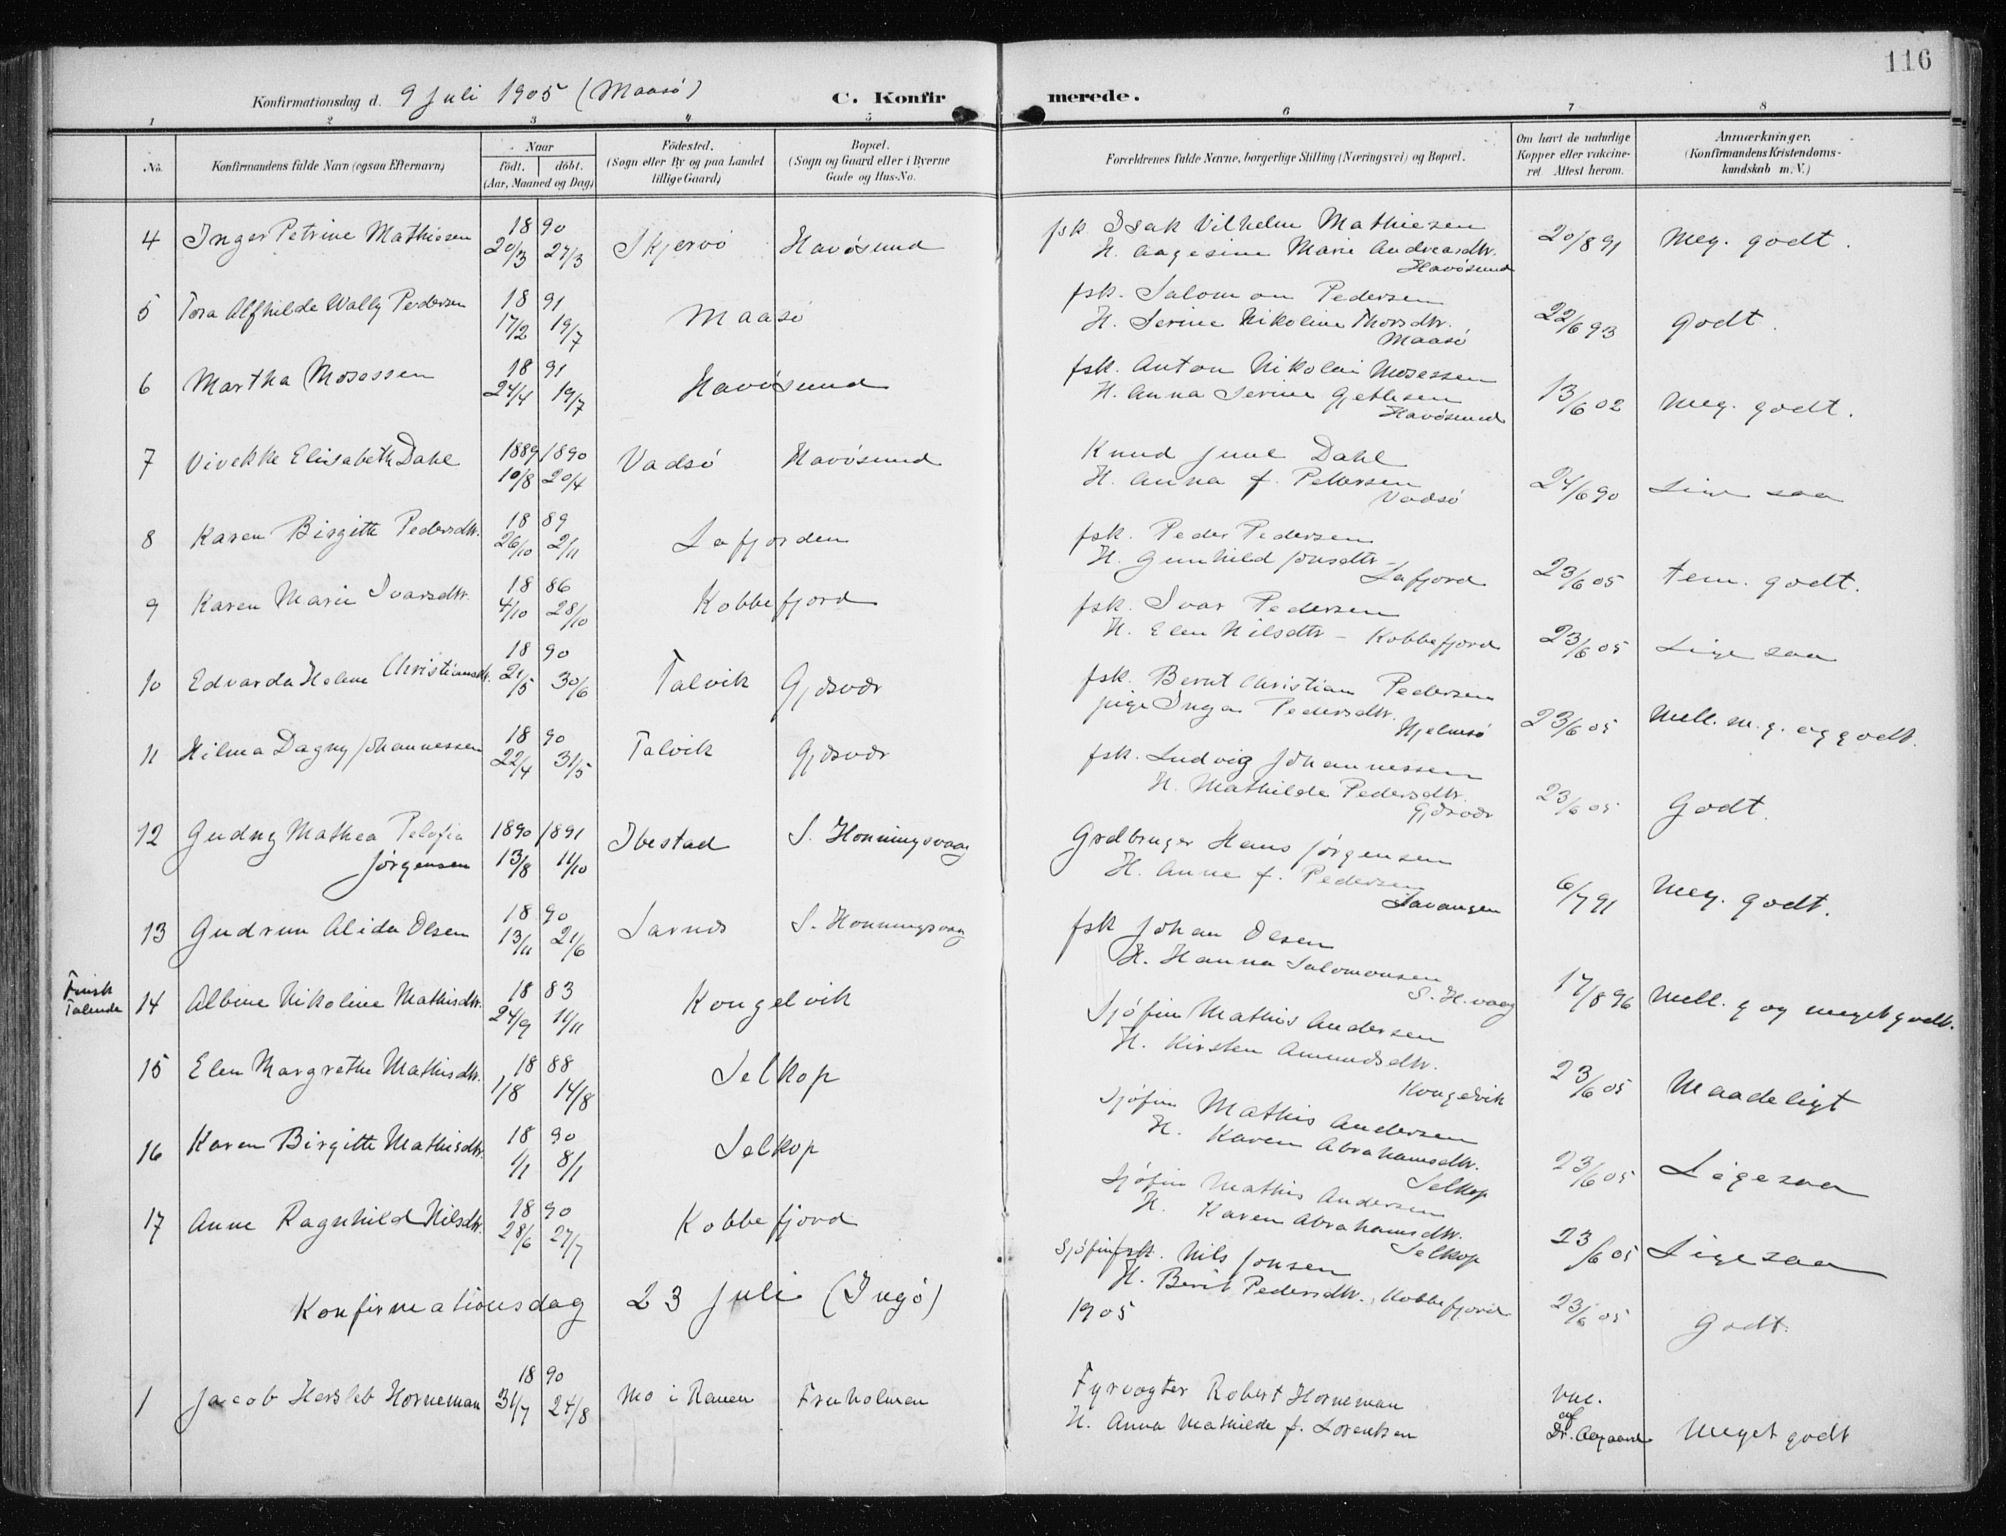 116
Konfirmationsdag d. 9 Juli 1905 (Maasö) C. Konfirmerede.
1 2 3 4 5 6 7 8
No. Konfirmandens fulde Navn (ogsaa Efternavn) Naar födt. döbt. (Aar, Maaned og Dag) Födested. (Sogn eller By og paa Landet tillige Gaard) Bopæl. (Sogn og Gaard eller i Byerne Gade og Hus-No. Forældrenes fulde Navne, borgerlige Stilling (Næringsvei) og Bopæl. Om havt de naturlige Kopper eller vakcineret Attest herom. Anmærkninger. (Konfirmandens Kristendomskundskab m. V.)
4 Inger Petrine Mathiesen 18 90 20/3 27/3 Skjervö Havösund fsk. Isak Vilhelm Mathiesen
H. Aagesine Marie Andreasdtr. Havösund 20/8 91 Meg. godt.
5 Tora Alfhilde Wally Pedersen 18 91 17/2 19/7 Maasö fsk. Salomon Pedersen
H. Serine Nikoline Thorsdtr. Maasö 22/6 93 Godt.
6 Martha Mosessen 18 91 24/4 19/7 Havösund fsk. Anton Nikolai Mosessen
H. Anna Serine Gjetlesen Havösund 13/6 02 Meg. godt.
7 Vivekke Elisabeth Dahl 1889/1890 10/8 20/4 Vadsö Havösund Knud Juul Dahl
H. Anna f. Pettersen Vadsö 24/6 90 Lige saa
8 Karen Birgitte Pedersdtr. 18 89 26/10 2/11 Lafjorden fsk. Peder Pedersen
H. Gunhild Jonsdtr. Lafjord 23/6 05 tem. godt.
9 Karen Marie Ivarsdtr. 18 86 4/10 28/10 Kobbefjord fsk. Ivar Pedersen
H. Elen Nilsdtr - Kobbefjord 23/6 05 Lige saa
10 Edvarda Helene Christiansdtr. 18 90 21/5 30/6 Talvik Gjæsvær fsk. Bernt Christian Pedersen
pige Inga Pedersdtr. Hjelmsö 23/6 05 Mell. m. g. og godt.
11 Hilma Dagny Johannessen 18 90 22/4 31/5 Talvik Gjæsvær fsk. Ludvig Johannessen
H. Mathilde Pedersdtr. Gjæsvær 23/6 05 Godt.
12 Gudny Mathea Pelofia Jörgensen 1890/1891 13/8 11/10 Ibestad S. Honningsvaag Grdbruger Hans Jörgensen
H. Anne f. Pedersen Savangen 6/7 91 Meg. godt.
13 Gudrun Alida Olsen 18 90 13/11 21/6 Sarnes S. Honningsvaag fsk Johan Olsen
H. Hanna Salomonsen S. H.vaag 17/8 96 Mell. g og meget godt.
Finsk Talende 14 Albine Nikoline Mathisdtr. 18 83 24/9 11/11 Kongelvik Sjöfin Mathis Andersen
H. Kirsten Amundsdtr. Kongelvik 23/6 05 Maadeligt
15 Elen Margrethe Mathisdtr. 18 88 1/8 14/8 Selkop Sjöfin Mathis Andersen
H. Karen Abrahamsdtr. Selkop 23/6 05 Ligesaa
16 Karen Birgitte Mathisdtr. 18 90 1/1 8/1 Selkop Sjöfin Mathis Andersen
H. Karen Abrahamsdtr. Selkop 23/6 05 Ligesaa
17 Anne Ragnhild Nilsdtr. 18 90 28/6 27/7 Kobbefjord Sjöfin fsk. Nils Jonsen
H. Berit Pedersdtr. Kobbefjord 23/6 05 Godt.
Konfirmationsdag 23 Juli (Ingö) 1905
1 Jacob Hersleb Horneman 18 90 31/7 24/8 Mo i Ranen Fruholmen Fyrvogter Robert Horneman
H. Anna Mathilde f. Lorentsen vac. af Dr. Aagaard Meget godt